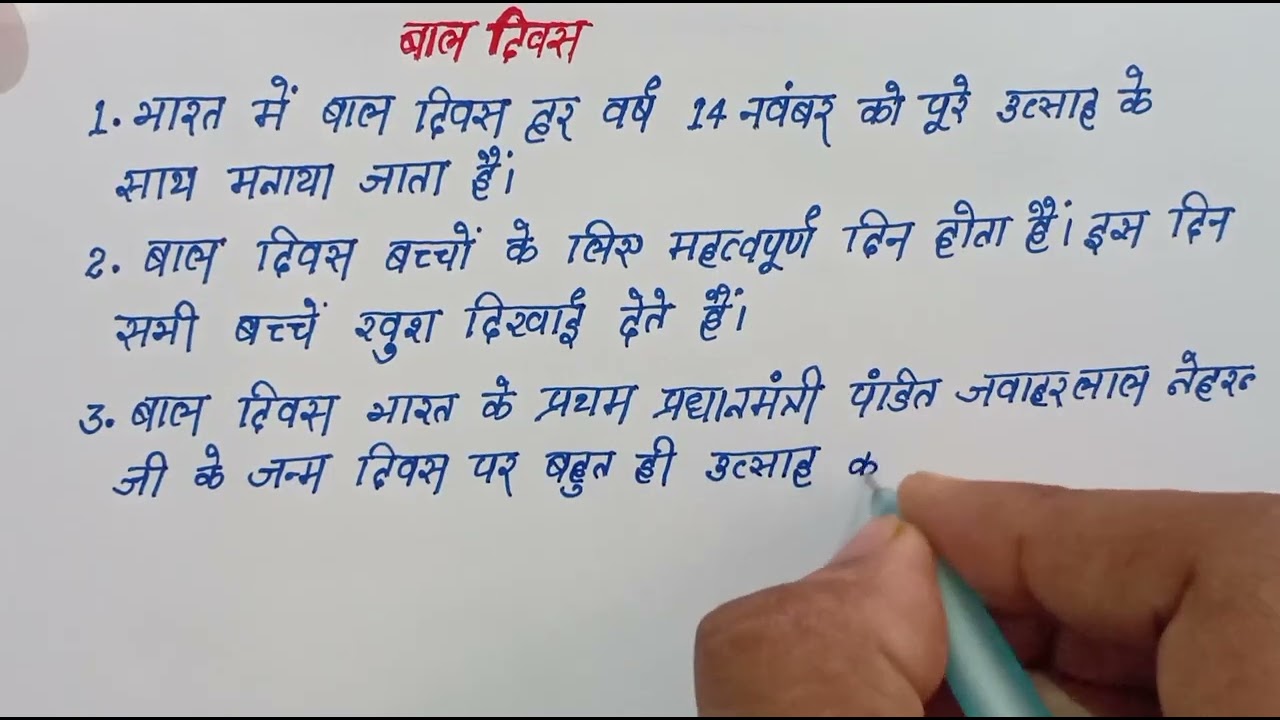 बाल दिवस
1. भारत में बाल दिवस हर वर्ष 14 नवंबर को पूरे उत्साह के
साथ मनाया जाता हैं।
2. बाल दिवस बच्चों के लिए महत्वपूर्ण दिन होता हैं। इस दिन
सभी बच्चें खुश दिखाई देते हैं।
3. बाल दिवस भारत के प्रथम प्रधानमंत्री पंडित जवाहरलाल नेहरू
जी के जन्म दिवस पर बहुत ही उत्साह क